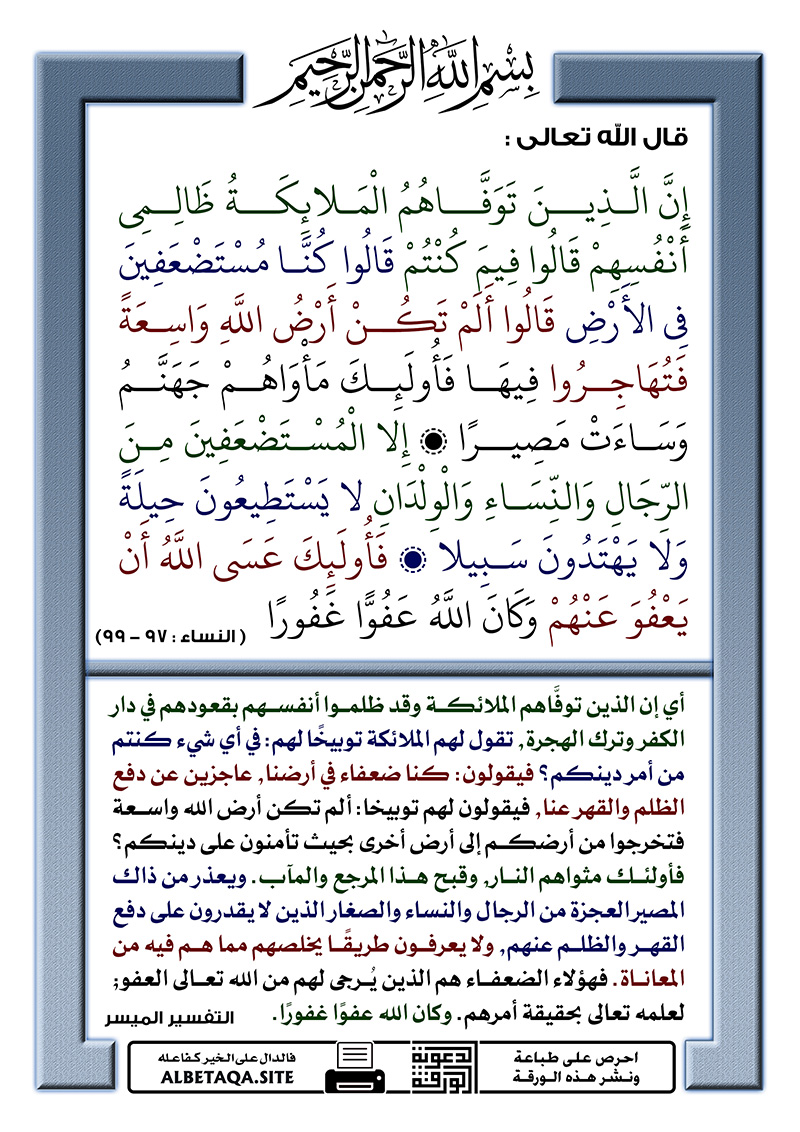 بِسْمِ اللَّهِ الرَّحْمَنِ الرَّحِيمِ
قال الله تعالى :
إِنَّ الَّذِينَ تَوَفَّاهُمُ الْمَلائِكَةُ ظَالِمِي
أَنْفُسِهِمْ قَالُوا فِيمَ كُنْتُمْ قَالُوا كُنَّا مُسْتَضْعَفِينَ
فِي الأَرْضِ قَالُوا أَلَمْ تَكُنْ أَرْضُ اللَّهِ وَاسِعَةً
فَتُهَاجِرُوا فِيهَا فَأُولَئِكَ مَأْوَاهُمْ جَهَنَّمُ
وَسَاءَتْ مَصِيرًا ۞ إِلا الْمُسْتَضْعَفِينَ مِنَ
الرِّجَالِ وَالنِّسَاءِ وَالْوِلْدَانِ لا يَسْتَطِيعُونَ حِيلَةً
وَلَا يَهْتَدُونَ سَبِيلا ۞ فَأُولَئِكَ عَسَى اللَّهُ أَنْ
يَعْفُوَ عَنْهُمْ وَكَانَ اللَّهُ عَفُوًّا غَفُورًا (النساء : ٩٧ - ٩٩)
أي إن الذين توفَّاهم الملائكة وقد ظلموا أنفسهم بقعودهم في دار
الكفر وترك الهجرة, تقول لهم الملائكة توبيخًا لهم: في أي شيء كنتم
من أمر دينكم؟ فيقولون: كنا ضعفاء في أرضنا, عاجزين عن دفع
الظلم والقهر عنا, فيقولون لهم توبيخا: ألم تكن أرض الله واسعة
فتخرجوا من أرضكم إلى أرض أخرى بحيث تأمنون على دينكم؟
فأولئك مثواهم النار, وقبح هذا المرجع والمآب. ويعذر من ذاك
المصير العجزة من الرجال والنساء والصغار الذين لا يقدرون على دفع
القهر والظلم عنهم, ولا يعرفون طريقًا يخلصهم مما هم فيه من
المعاناة. فهؤلاء الضعفاء هم الذين يُرجى لهم من الله تعالى العفو;
لعلمه تعالى بحقيقة أمرهم. وكان الله عفوًا غفورًا. التفسير الميسر
احرص على طباعة
ونشر هذه الورقة
الورقة الدعوية
فالدال على الخير كفاعله
ALBETAQA.SITE